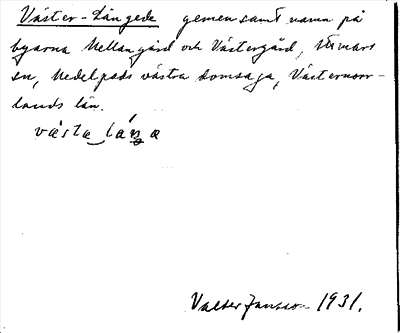 Väster-Långede gemensamt namn på
byarna Mellangård och Västergård, Stuguns
sn, Medelpads västra domsaga, Västernorr-
lands län.
västa låŋa
Valter Jansson 1931.